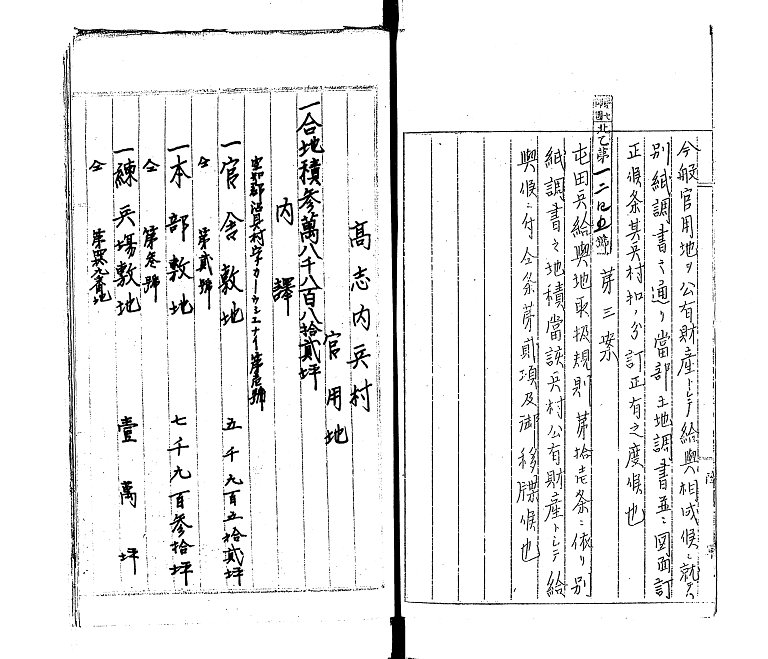 今般官用地ヲ公有財産トシテ給與相成候ニ就テハ
別紙調書之通リ當部土地調書並ニ図面訂
正候条其兵村扣ノ分訂正有之度候也
北乙第一二四五號 第三案
屯田兵給與地取扱規則第拾壱条ニ依リ別
紙調書之地積當該兵村公有財産トシテ給
與候ニ付仝条第貳項及御移牒候也
高志内兵村
官用地
一合地積参萬八千八百八拾貳坪
内譯
空知郡沼貝村字
一官舎敷地 五千九百五拾貳坪
仝 第貳號
一本部敷地 七千九百参拾坪
仝 第参號
一練兵場敷地 壹萬坪
仝